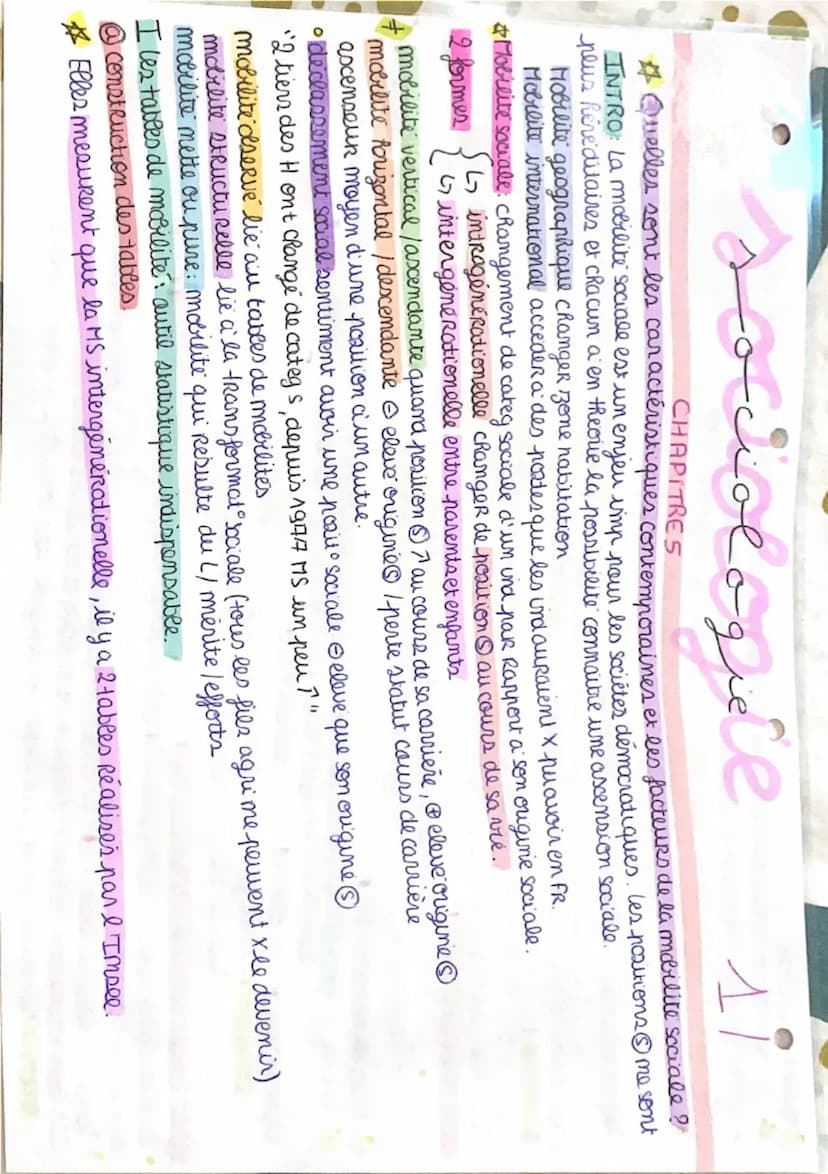 sociologie 1/
CHAPITRE 5
☆ Quelles sont les caractéristiques contemporaines et les facteurs de la mobilité sociale ?
INTRO: La mobilité sociale est un enjeu pour les sociétés démocratiques. Les positions Ⓢ ne sont
plus héréditaires et chacun a en théorie la possibilité connaitre une ascension sociale.
Mobilité géographique changer zone habitation
Mobilité international acceder à des postes que les ind auraient X pu avoir en FR.
☆ Mobilité sociale: changement de categ sociale d'un ind par rapport à son origine sociale.
2 formes { ↳ intragénérationelle changer de position Ⓢ au cours de sa vie.
↳ intergénérationelle entre parents et enfants
≠ mobilité vertical/ascendante quand position Ⓢ ↗ au cours de sa carrière, ⊕ elevé origine Ⓢ
mobilité horizontal/descendante ⊖ elevé origine Ⓢ / perte statut cours de carrière
ascenseur moyen d'une position à un autre.
• déclassement social sentiment avoir une posit° sociale ⊖ elevé que son origine Ⓢ
"2 tiers des H ont changé de categ s, depuis 1977 MS un peu ↗"
mobilité observé lié au tables de mobilités
mobilité structurelle lié à la transformat° sociale (tous les fils agri ne peuvent X le devenir)
mobilité nette ou pure: mobilité qui résulte du L/ mérite/efforts
I les tables de mobilité: outil statistique indispensable.
@ construction des tables
☆ Elles mesurent que la MS intergénérationelle, il y a 2 tables réalisés par l'Insee.